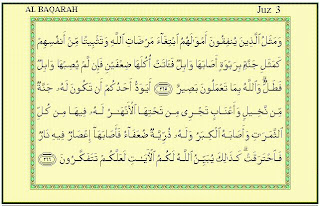 AL BAQARAH Juz 3
وَمَثَلُ ٱلَّذِينَ يُنفِقُونَ أَمْوَٰلَهُمُ ٱبْتِغَآءَ مَرْضَاتِ ٱللَّهِ وَتَثْبِيتًا مِّنْ أَنفُسِهِمْ
كَمَثَلِ جَنَّةٍۭ بِرَبْوَةٍ أَصَابَهَا وَابِلٌ فَـَٔاتَتْ أُكُلَهَا ضِعْفَيْنِ فَإِن لَّمْ يُصِبْهَا وَابِلٌ
فَطَلٌّ ۗ وَٱللَّهُ بِمَا تَعْمَلُونَ بَصِيرٌ ٢٦٥ أَيَوَدُّ أَحَدُكُمْ أَن تَكُونَ لَهُۥ جَنَّةٌ
مِّن نَّخِيلٍ وَأَعْنَابٍ تَجْرِى مِن تَحْتِهَا ٱلْأَنْهَـٰرُ لَهُۥ فِيهَا مِن كُلِّ
ٱلثَّمَرَٰتِ وَأَصَابَهُ ٱلْكِبَرُ وَلَهُۥ ذُرِّيَّةٌ ضُعَفَآءُ فَأَصَابَهَآ إِعْصَارٌ فِيهِ نَارٌ
فَٱحْتَرَقَتْ ۗ كَذَٰلِكَ يُبَيِّنُ ٱللَّهُ لَكُمُ ٱلْـَٔايَـٰتِ لَعَلَّكُمْ تَتَفَكَّرُونَ ٢٦٦